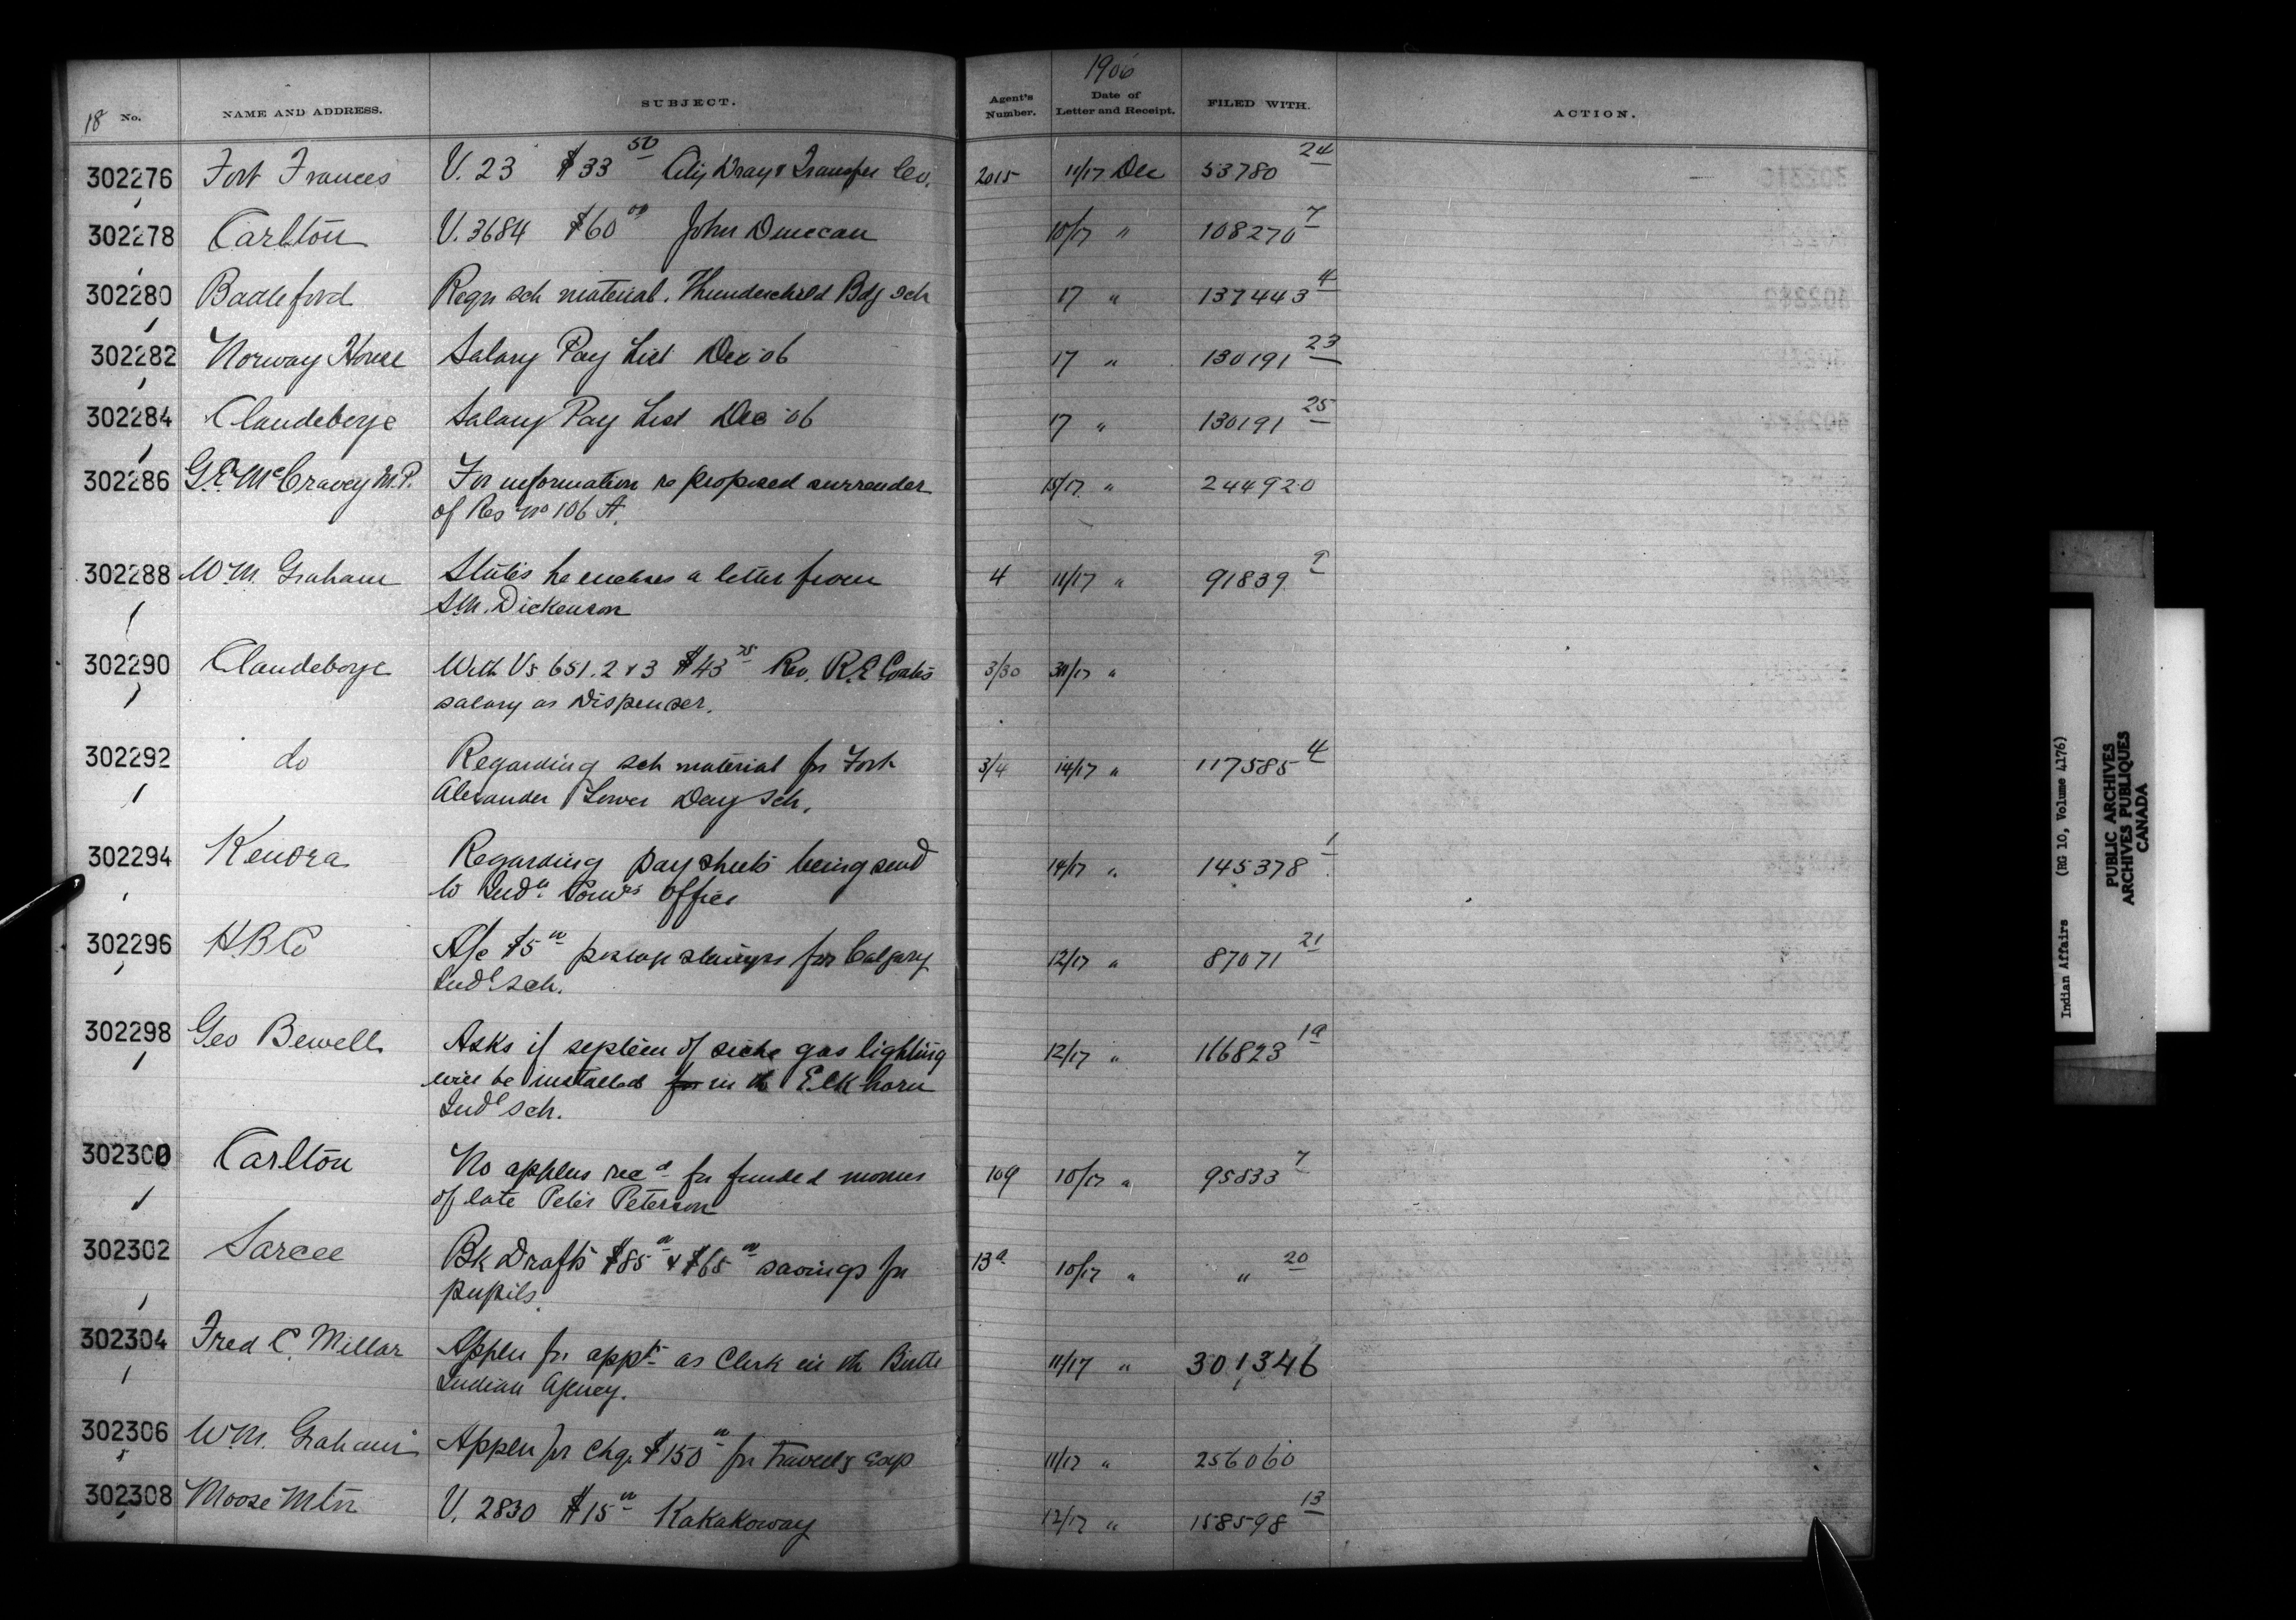 1906
18 No. NAME AND ADDRESS. SUBJECT. Agent's Number. Date of Letter and Receipt. FILED WITH. ACTION.
302276 Fort Frances V. 23 $33 50 City Dray & Transfer Co. 2015 11/17 Dec 53780 24
302278 Carlton V. 3684 $60 00 John Duncan 10/17 " 108270 7
302280 Battleford Reqn sch material. Thunderchild Bdg sch 17 " 137443 4
302282 Norway House Salary Pay List Dec '06 17 " 130191 23
302284 Clandeboye Salary Pay List Dec '06 17 " 130191 25
302286 G.E. McCraney M.P. For information re proposed surrender 15/17 " 244920
of Res No 106 A.
302288 W.M. Graham States he encloses a letter from 4 11/17 " 91839 9
S.M. Dickenson
302290 Clandeboye With Vs 651.2 & 3 $43 75 Rev. R.E. Coates 3/30 30/17 "
salary as Dispenser.
302292 do Regarding sch material for Fort 3/4 14/17 " 117585 4
Alexander Lower Day Sch.
302294 Kenora Regarding pay sheets being send 14/17 " 145378 1
to Indn Comrs Office
302296 H.B.Co A/c $5 00 postage stamps for Calgary 12/17 " 87071 21
Indl sch.
302298 Geo Bewell Asks if system of siche gas lighting 12/17 " 116823 1a
will be installed for in th Elkhorn
Indl sch.
302300 Carlton No applns recd for funded monies 109 10/17 " 95833 7
of late Peter Peterson
302302 Sarcee Bk Drafts $85 00 & $65 00 savings for 13a 10/17 " " 20
pupils.
302304 Fred C. Millar Appln for appt as Clerk in th Birtle 11/17 " 301346
Indian Agency.
302306 W.M. Graham Appln for chq. $150 00 for travelg exp 11/17 " 256060
302308 Moose Mtn V. 2830 $15 00 Kakakoway 12/17 " 158598 13
Indian Affairs (RG 10, Volume 4176)
PUBLIC ARCHIVES
ARCHIVES PUBLIQUES
CANADA